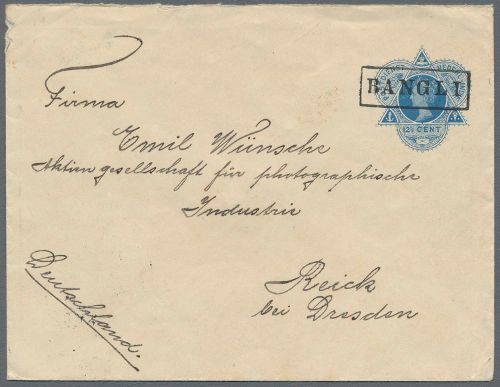 BANGLI
12½ CENT
Firma
Emil Wünsche
Aktiengesellschaft für photographische
Industrie
Reick
bei Dresden
Deutschland.